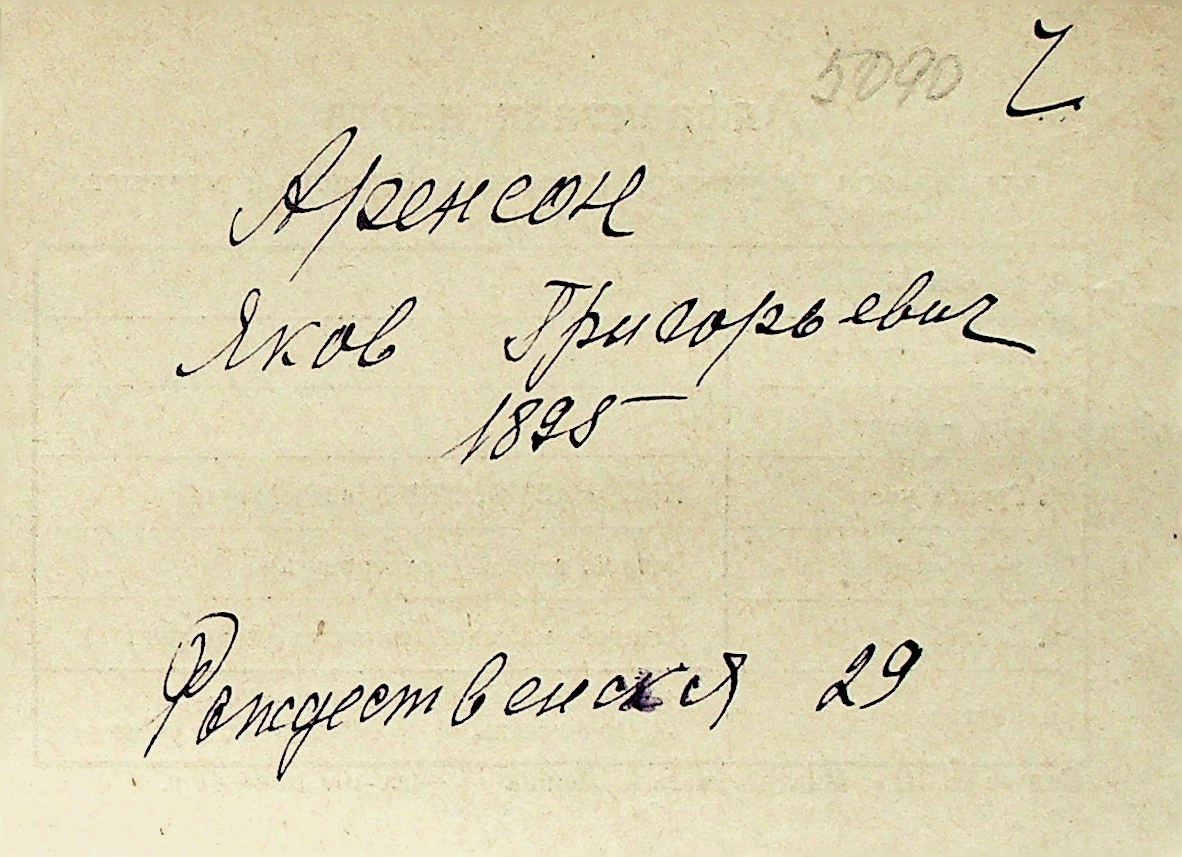 5090 Ч
Аренсон
Яков Григорьевич
1898
Рождественская 29